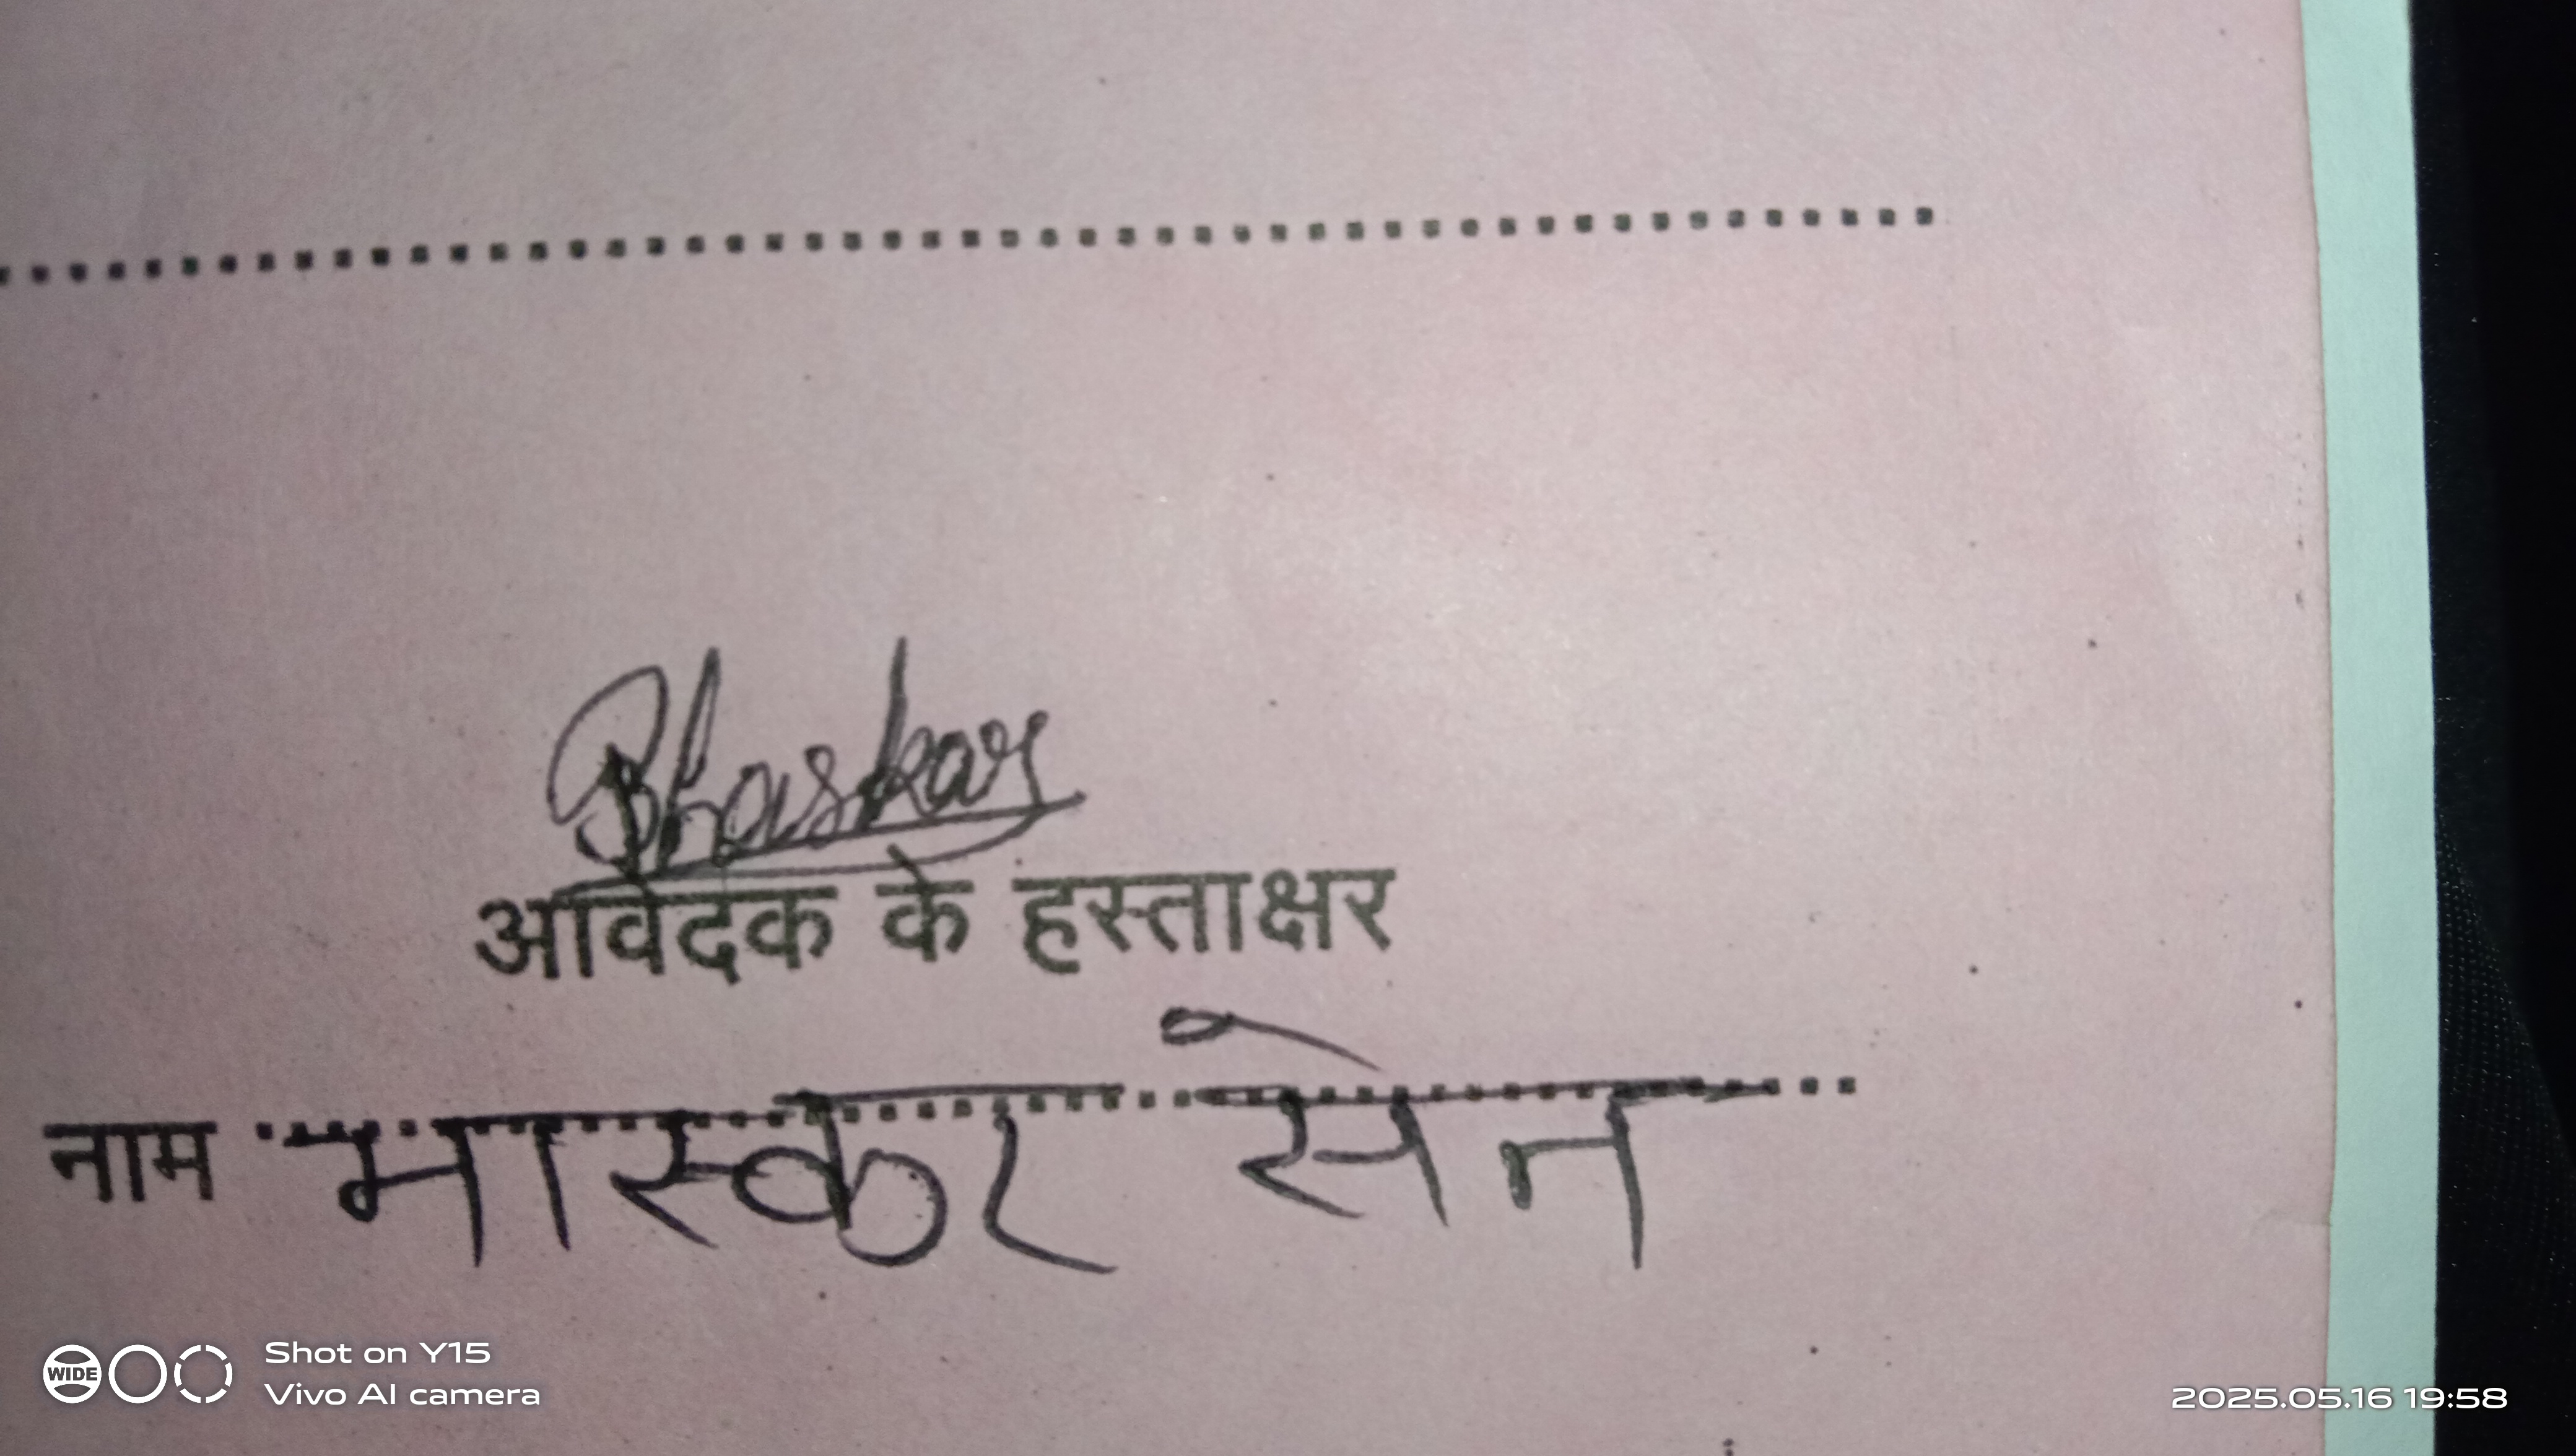 Bhaskar
आवेदक के हस्ताक्षर
नाम भास्कर सेन
WIDE
Shot on Y15
Vivo AI camera
2025.05.16 19:58